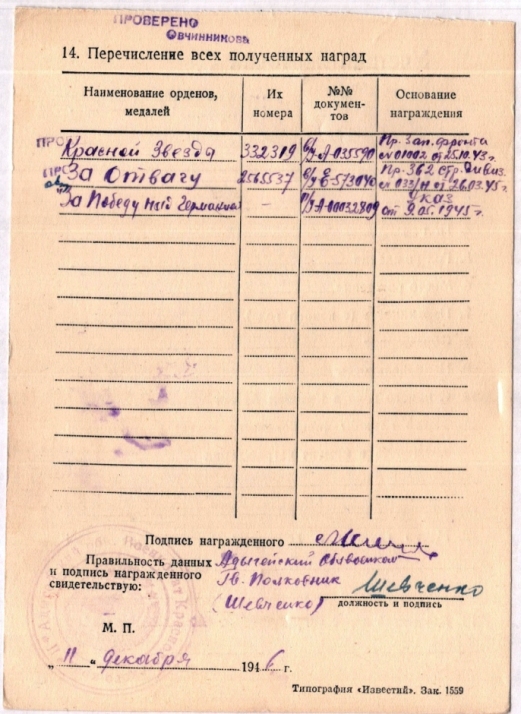 ПРОВЕРЕНО
Овчинникова
14. Перечисление всех полученных наград
Наименование орденов, медалей
Их номера
№№ документов
Основание награждения
Красной Звезда 332319 А-035590 Пр. Зап. фронта
№ 01002 от 25.10.43 г.
За Отвагу 2565537 Е-573040 Пр. 362 стр. дивиз.
№ 033/н от 26.03.45 г.
За Победу над Германией - А-00032809 Указ
от 9.05.1945 г.
Подпись награжденного
Правильность данных
и подпись награжденного
свидетельствую:
Адыгейский Облвоенком
Гв. Полковник
(Шевченко)
Шевченко
должность и подпись
М. П.
"11" декабря 1946 г.
Типография «Известий». Зак. 1559